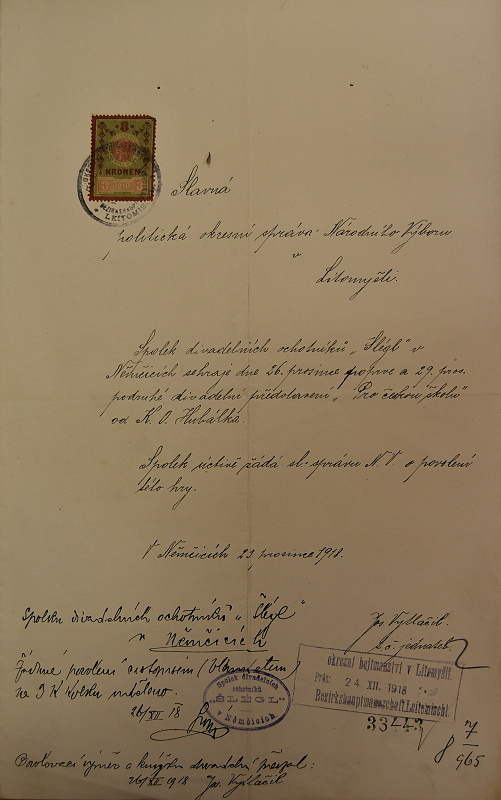 3
KRONEN
3 1910 3
LEITOMIS
Slavná
politická okresní správa Národního Výboru
v
Litomyšli.
Spolek divadelních ochotníků „Šlégl" v
Němčicích sehraje dne 26. prosince poprvé a 29. pros.
podruhé divadelní představení „Pro českou školu"
od K. O. Hubálka.
Spolek uctivě žádá sl. správu N. V. o povolení
této hry.
V Němčicích 23. prosince 1918.
Spolku divadelních ochotníků „Šlégl"
v Němčicích
Jos. Vytlačil
t. č. jednatel.
žádané povolení
na 3 K kolku
26/XII 18
Spolek divadelních
ochotníků
„ŠLÉGL"
v Němčicích.
okresní hejtmanství v Litomyšli.
Präs. 24 XII. 1918
Bezirkshauptmannschaft Leitomischl.
33443
7
8 965
a knížku divadelní přejal:
26/XII 1918 Jos. Vytlačil